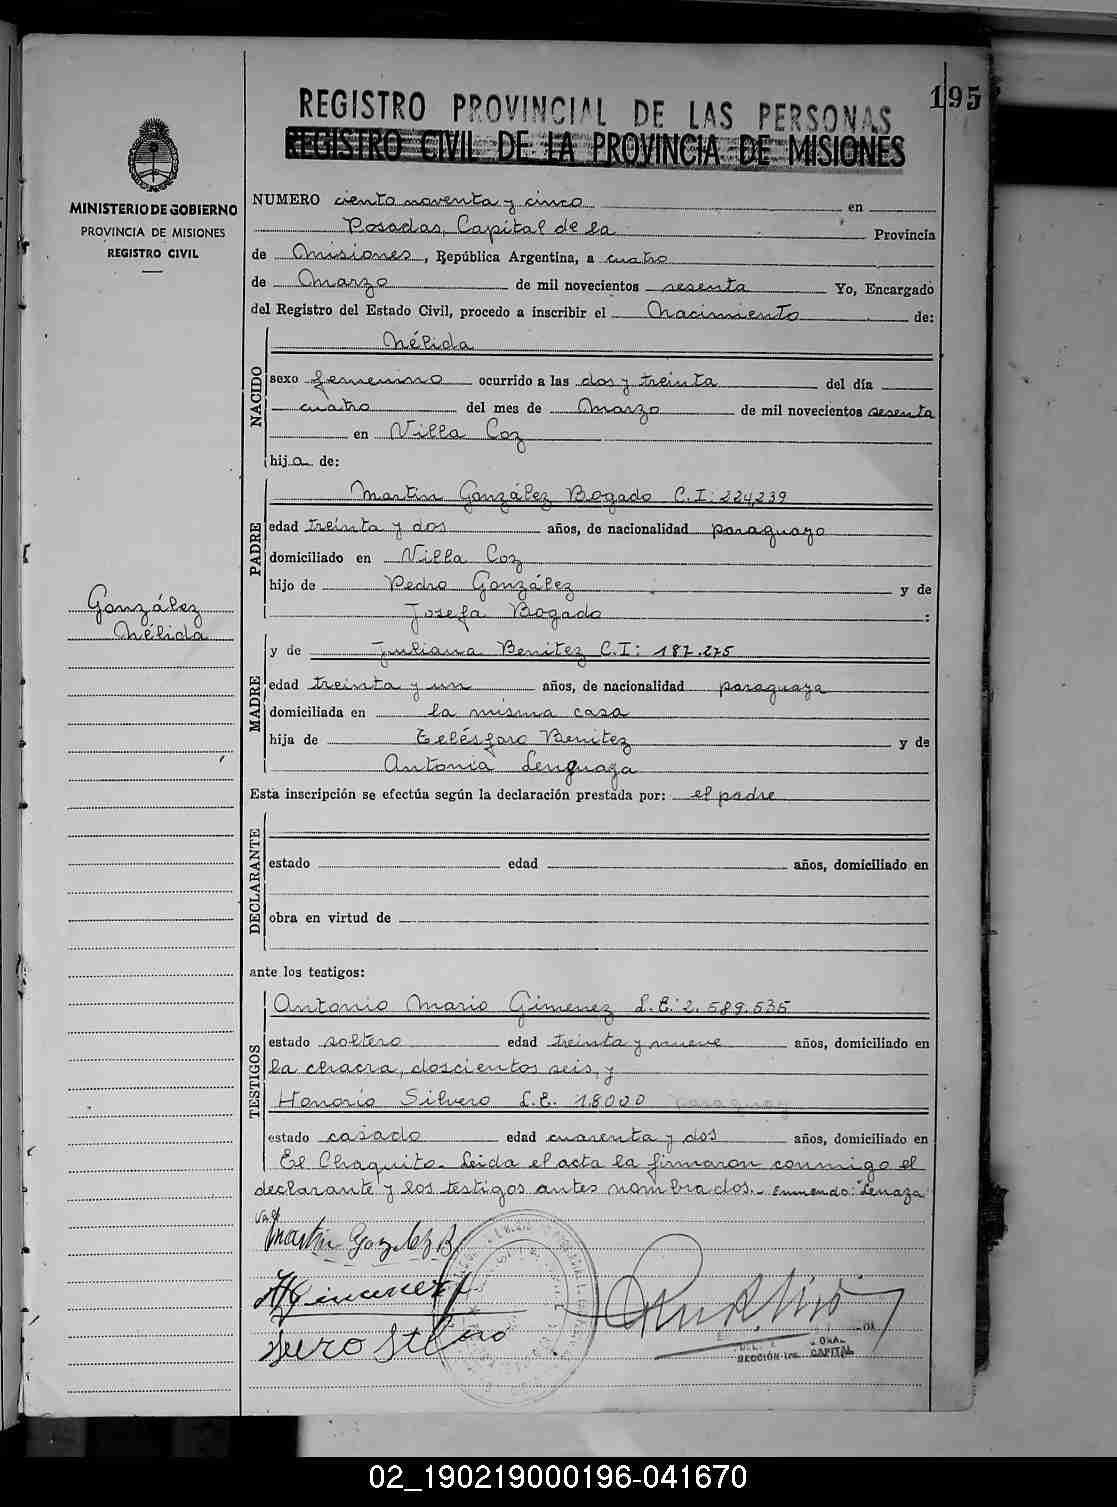 195
REGISTRO PROVINCIAL DE LAS PERSONAS
REGISTRO CIVIL DE LA PROVINCIA DE MISIONES
MINISTERIO DE GOBIERNO
PROVINCIA DE MISIONES
REGISTRO CIVIL
NUMERO ciento noventa y cinco en
Posadas, Capital de la Provincia
de Misiones, República Argentina, a cuatro
de Marzo de mil novecientos sesenta Yo, Encargado
del Registro del Estado Civil, procedo a inscribir el Nacimiento de:
Nélida
NACIDO
sexo femenino ocurrido a las dos y treinta del día
cuatro del mes de Marzo de mil novecientos sesenta
en Villa Coz
hija de:
Martin González Bogado C.I: 224,239
PADRE
edad treinta y dos años, de nacionalidad paraguayo
domiciliado en Villa Coz
hijo de Pedro González y de
Josefa Bogado :
González
Nélida
y de Juliana Benitez C.I: 187.275
MADRE
edad treinta y un años, de nacionalidad paraguaya
domiciliada en la misma casa
hija de Telésforo Benitez y de
Antonia Lenguaza
Esta inscripción se efectúa según la declaración prestada por: el padre
DECLARANTE
estado edad años, domiciliado en
obra en virtud de
ante los testigos:
TESTIGOS
Antonio Mario Gimenez L.E: 2.589.535
estado soltero edad treinta y nueve años, domiciliado en
la chacra, doscientos seis, y
Honorio Silvero L.E. 18000 paraguay
estado casado edad cuarenta y dos años, domiciliado en
El Chaquito. Leida el acta la firmaron conmigo el
declarante y los testigos antes nombrados. Enmendo: "Lenaza
Vale
Martin Gonzalez B
AGimenez
SECCIÓN 1ra. CAPITAL
02_190219000196-041670